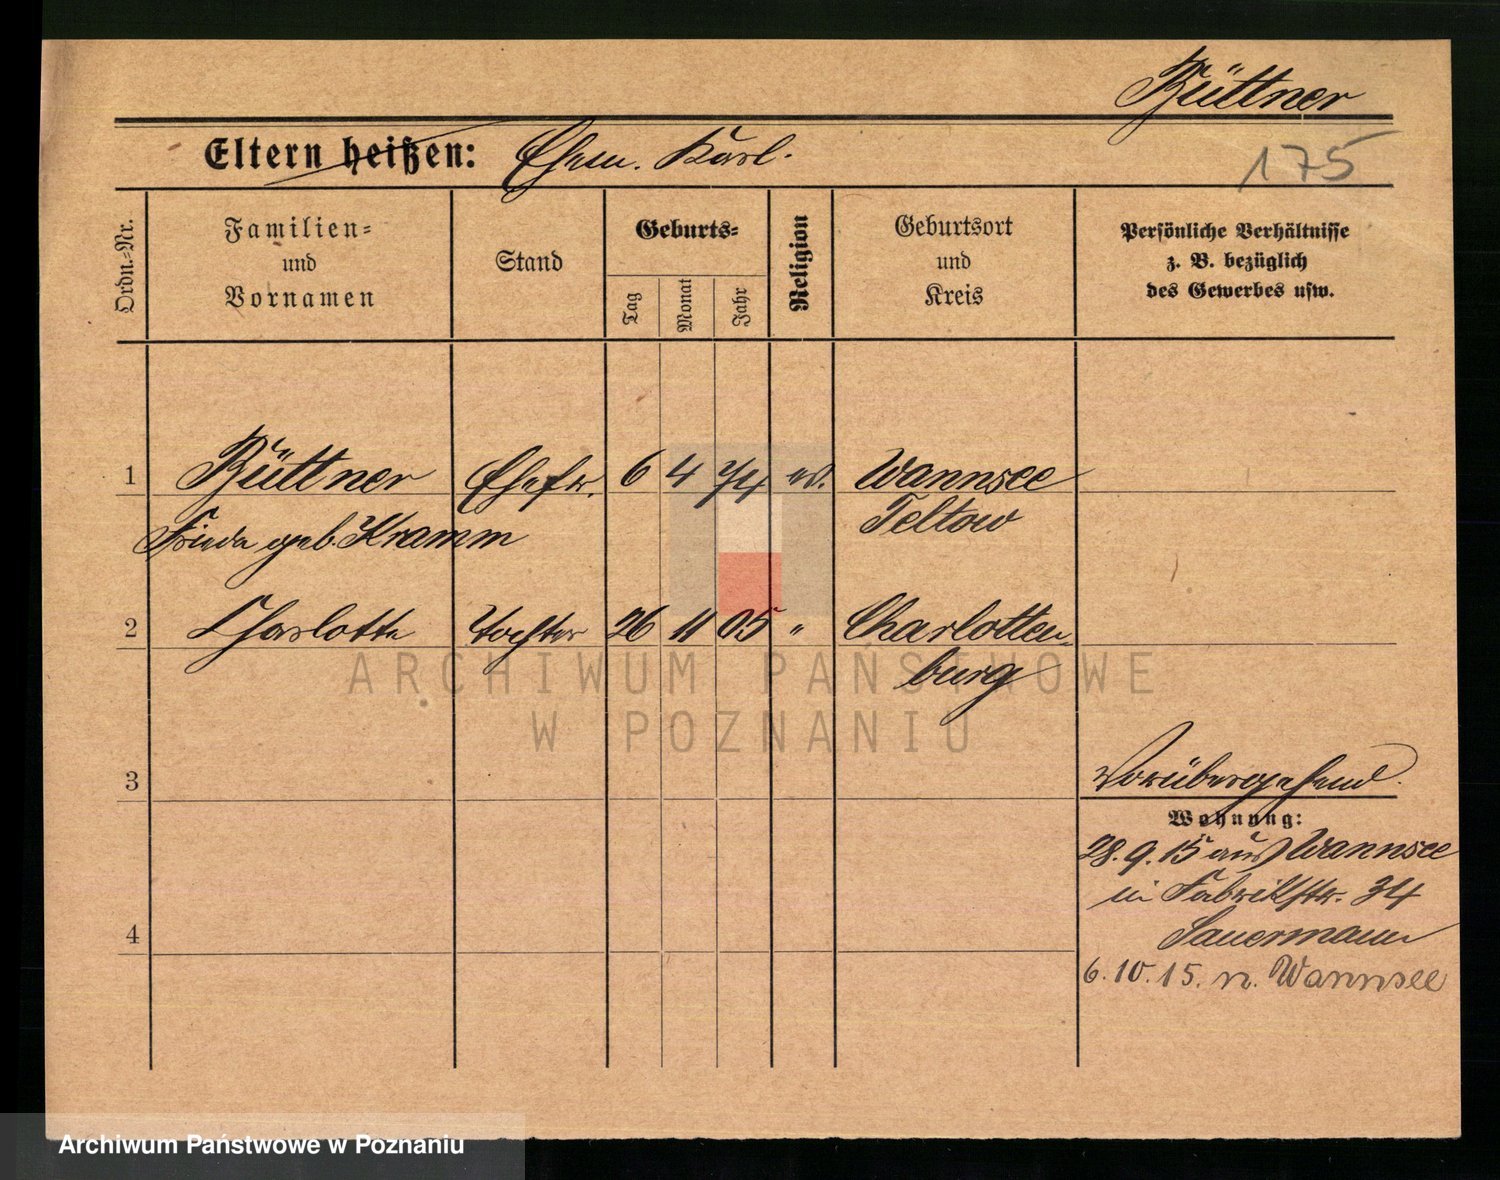 Büttner
Eltern heißen: Ehem. Karl.
175
Ordn.-Nr.
Familien-
und
Vornamen
Stand
Geburts-
Tag
Monat
Jahr
Religion
Geburtsort
und
Kreis
Persönliche Verhältnisse
z. B. bezüglich
des Gewerbes usw.
1 Büttner Ehefr. 6 4 74 ev. Wannsee
Frieda geb. Kramm Teltow
2 Charlotte Tochter 26 11 05 " Charlotten-
burg
3
Vorübergehend.
Wohnung:
28.9.15 aus Wannsee
in Fabrikstr. 34
4
Sauermann
6.10.15. n. Wannsee
ARCHIWUM PAŃSTWOWE
W POZNANIU
Archiwum Państwowe w Poznaniu